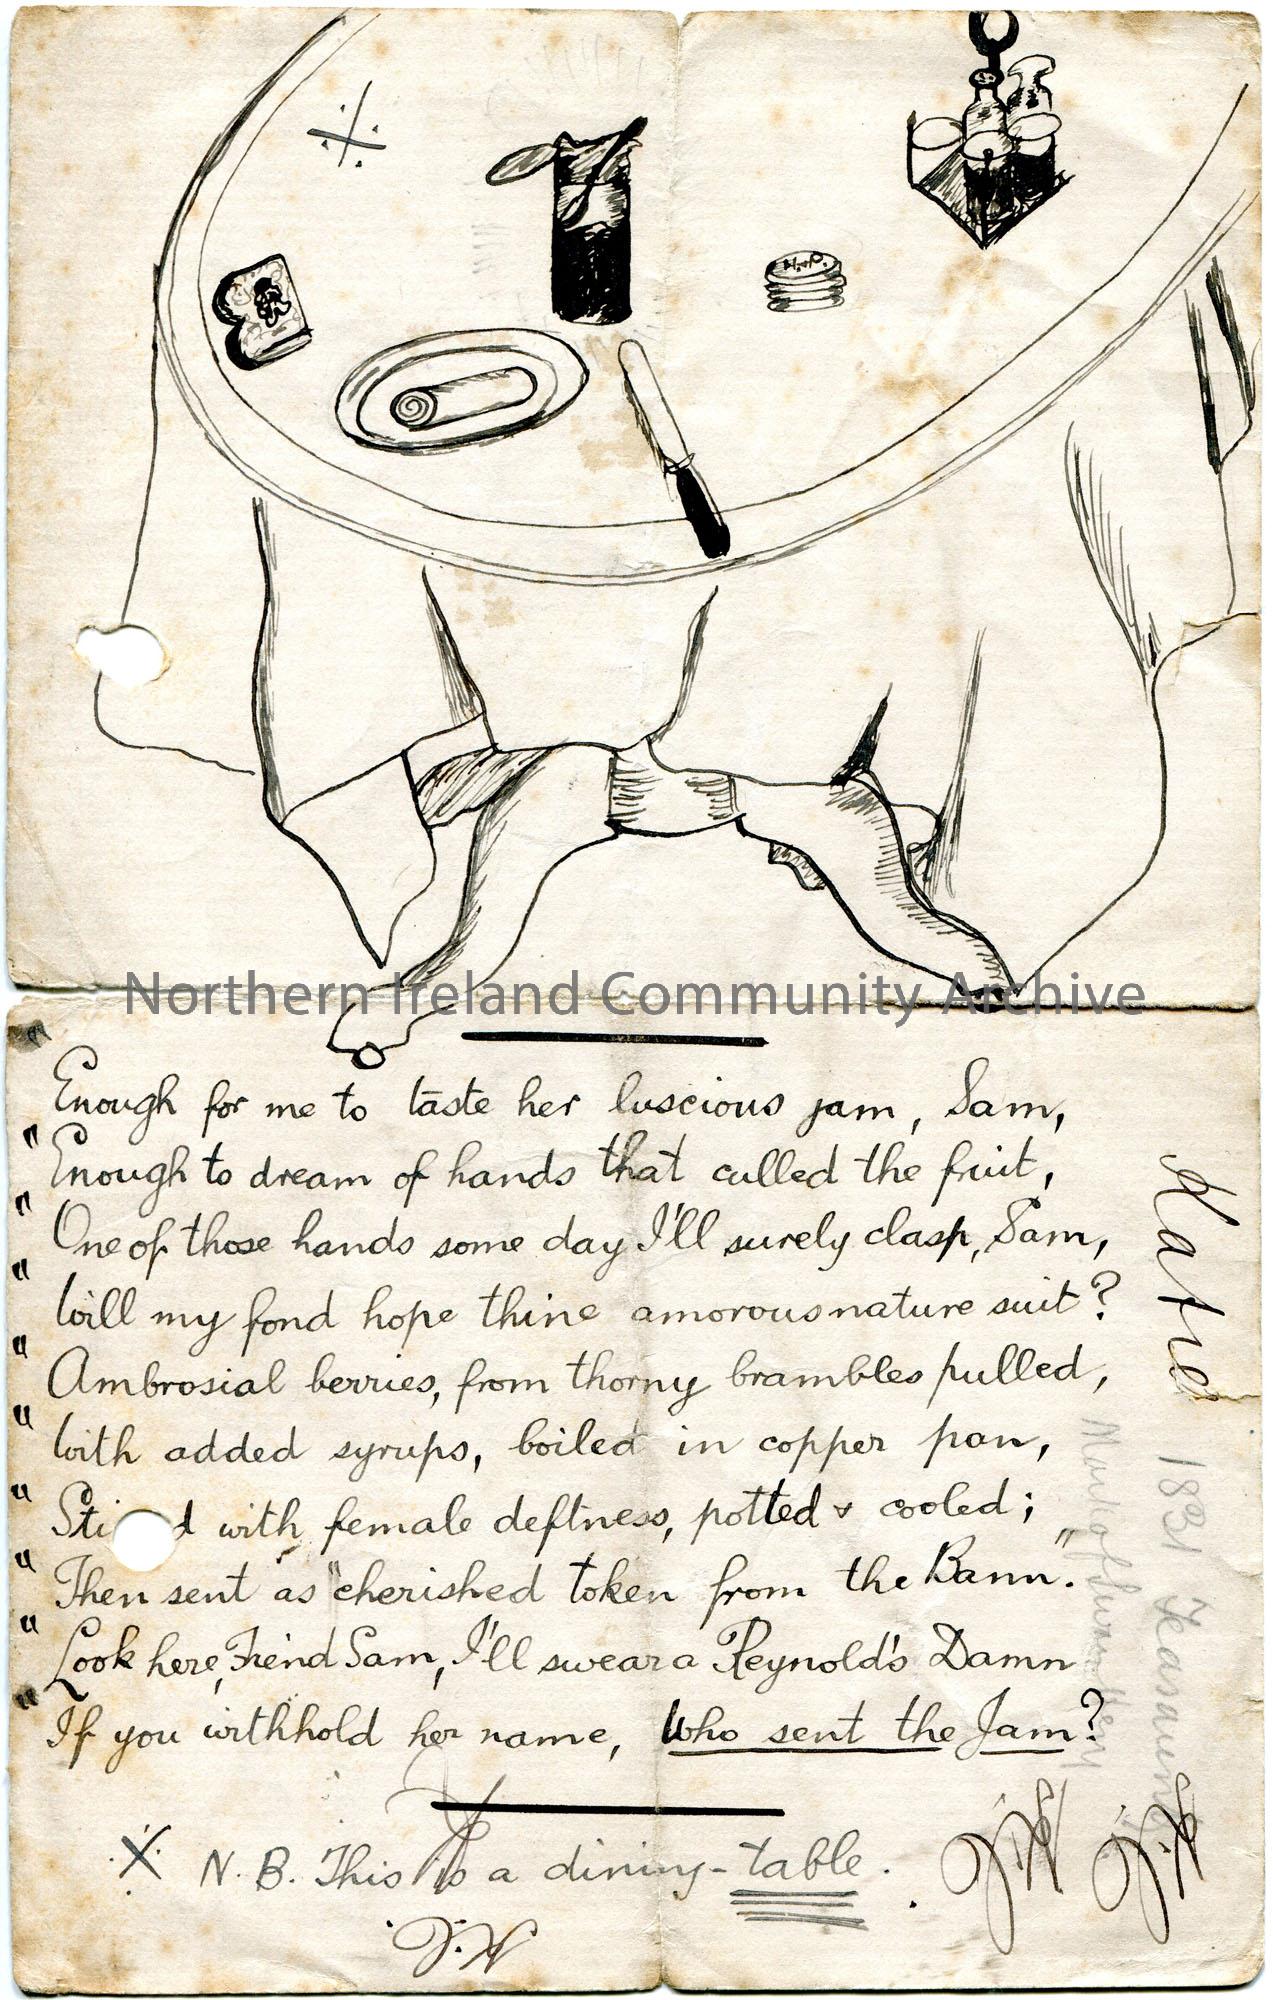 H.P.
Northern Ireland Community Archive
"Enough for me to taste her luscious jam, Sam,
"Enough to dream of hands that culled the fruit,
"One of those hands some day I'll surely clasp, Sam,
"Will my fond hope thine amorous nature suit?
"Ambrosial berries, from thorny brambles pulled,
"With added syrups, boiled in copper pan,
"Sti d with female deftness, potted & cooled;
"Then sent as "cherished token from the Bann."
"Look here, Friend Sam, I'll swear a Reynold's Damn
"If you withhold her name, Who sent the Jam?
N.B. This is a dining-table.
Katie